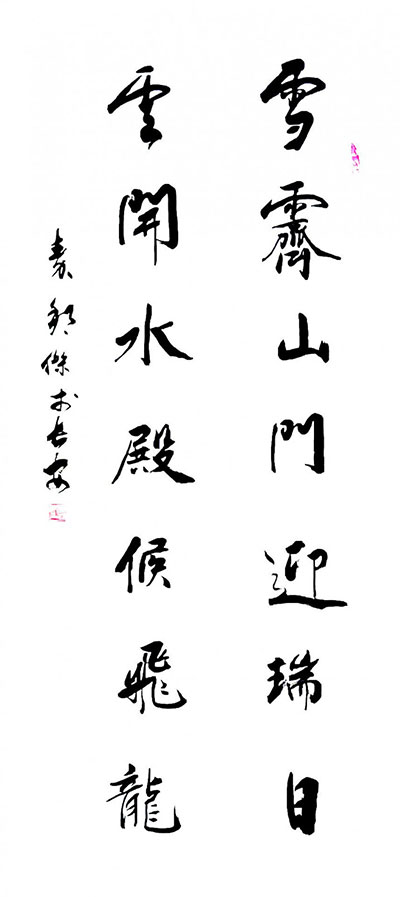 雪霽山門迎瑞日
雲開水殿候飛龍
於長安